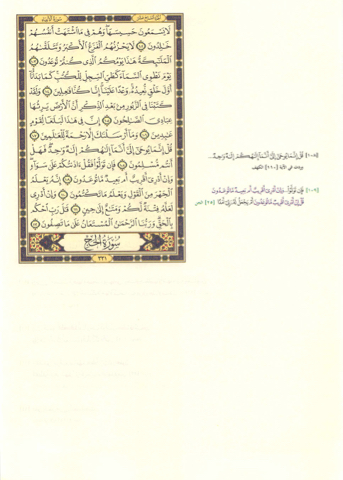 لَا يَسْمَعُونَ حَسِيسَهَا وَهُمْ فِى مَا ٱشْتَهَتْ أَنفُسُهُمْ
خَٰلِدُونَ ١٠٢ لَا يَحْزُنُهُمُ ٱلْفَزَعُ ٱلْأَكْبَرُ وَتَتَلَقَّىٰهُمُ
ٱلْمَلَٰٓئِكَةُ هَٰذَا يَوْمُكُمُ ٱلَّذِى كُنتُمْ تُوعَدُونَ ١٠٣
يَوْمَ نَطْوِى ٱلسَّمَآءَ كَطَىِّ ٱلسِّجِلِّ لِلْكُتُبِ كَمَا بَدَأْنَآ
أَوَّلَ خَلْقٍ نُّعِيدُهُۥ وَعْدًا عَلَيْنَآ إِنَّا كُنَّا فَٰعِلِينَ ١٠٤ وَلَقَدْ
كَتَبْنَا فِى ٱلزَّبُورِ مِنۢ بَعْدِ ٱلذِّكْرِ أَنَّ ٱلْأَرْضَ يَرِثُهَا
عِبَادِىَ ٱلصَّٰلِحُونَ ١٠٥ إِنَّ فِى هَٰذَا لَبَلَٰغًا لِّقَوْمٍ
عَٰبِدِينَ ١٠٦ وَمَآ أَرْسَلْنَٰكَ إِلَّا رَحْمَةً لِّلْعَٰلَمِينَ ١٠٧
قُلْ إِنَّمَا يُوحَىٰٓ إِلَىَّ أَنَّمَآ إِلَٰهُكُمْ إِلَٰهٌ وَٰحِدٌ فَهَلْ
أَنتُم مُّسْلِمُونَ ١٠٨ فَإِن تَوَلَّوْا۟ فَقُلْ ءَاذَنتُكُمْ عَلَىٰ سَوَآءٍ وَ
إِنْ أَدْرِىٓ أَقَرِيبٌ أَم بَعِيدٌ مَّا تُوعَدُونَ ١٠٩ إِنَّهُۥ يَعْلَمُ
ٱلْجَهْرَ مِنَ ٱلْقَوْلِ وَيَعْلَمُ مَا تَكْتُمُونَ ١١٠ وَإِنْ أَدْرِى
لَعَلَّهُۥ فِتْنَةٌ لَّكُمْ وَمَتَٰعٌ إِلَىٰ حِينٍ ١١١ قَٰلَ رَبِّ ٱحْكُم
بِٱلْحَقِّ وَرَبُّنَا ٱلرَّحْمَٰنُ ٱلْمُسْتَعَانُ عَلَىٰ مَا تَصِفُونَ ١١٢
سُورَةُ الحَجِّ
٣٣١
[١٠٨] قُلْ إِنَّمَا يُوحَىٰٓ إِلَىَّ أَنَّمَآ إِلَٰهُكُمْ إِلَٰهٌ وَٰحِدٌ
[١١٠] الكهف
[١٠٩] فَإِن تَوَلَّوْا۟
وَإِنْ أَدْرِىٓ أَقَرِيبٌ أَم بَعِيدٌ مَّا تُوعَدُونَ
قُلْ إِنْ أَدْرِىٓ أَقَرِيبٌ مَّا تُوعَدُونَ أَمْ يَجْعَلُ لَهُۥ رَبِّىٓ أَمَدًا